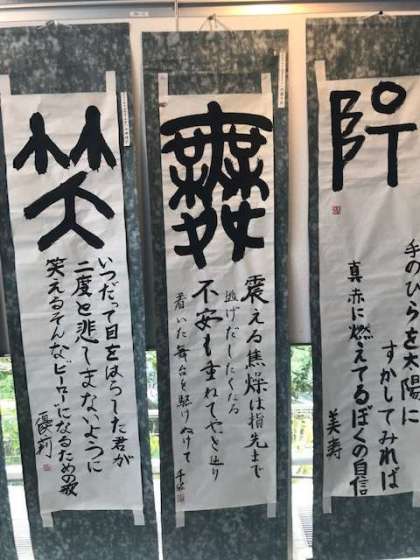 手のひらを太陽に
すかしてみれば
真赤に燃えてるぼくの自信
美寿
震える焦燥は指先まで
逃げだしたくなる
不安も重ねてやっと辿り
着いた舞台を駆けぬけて
笑
いつだって目をはらした君が
二度と悲しまないように
笑えるそんな"ヒーロー"になるための歌
優莉